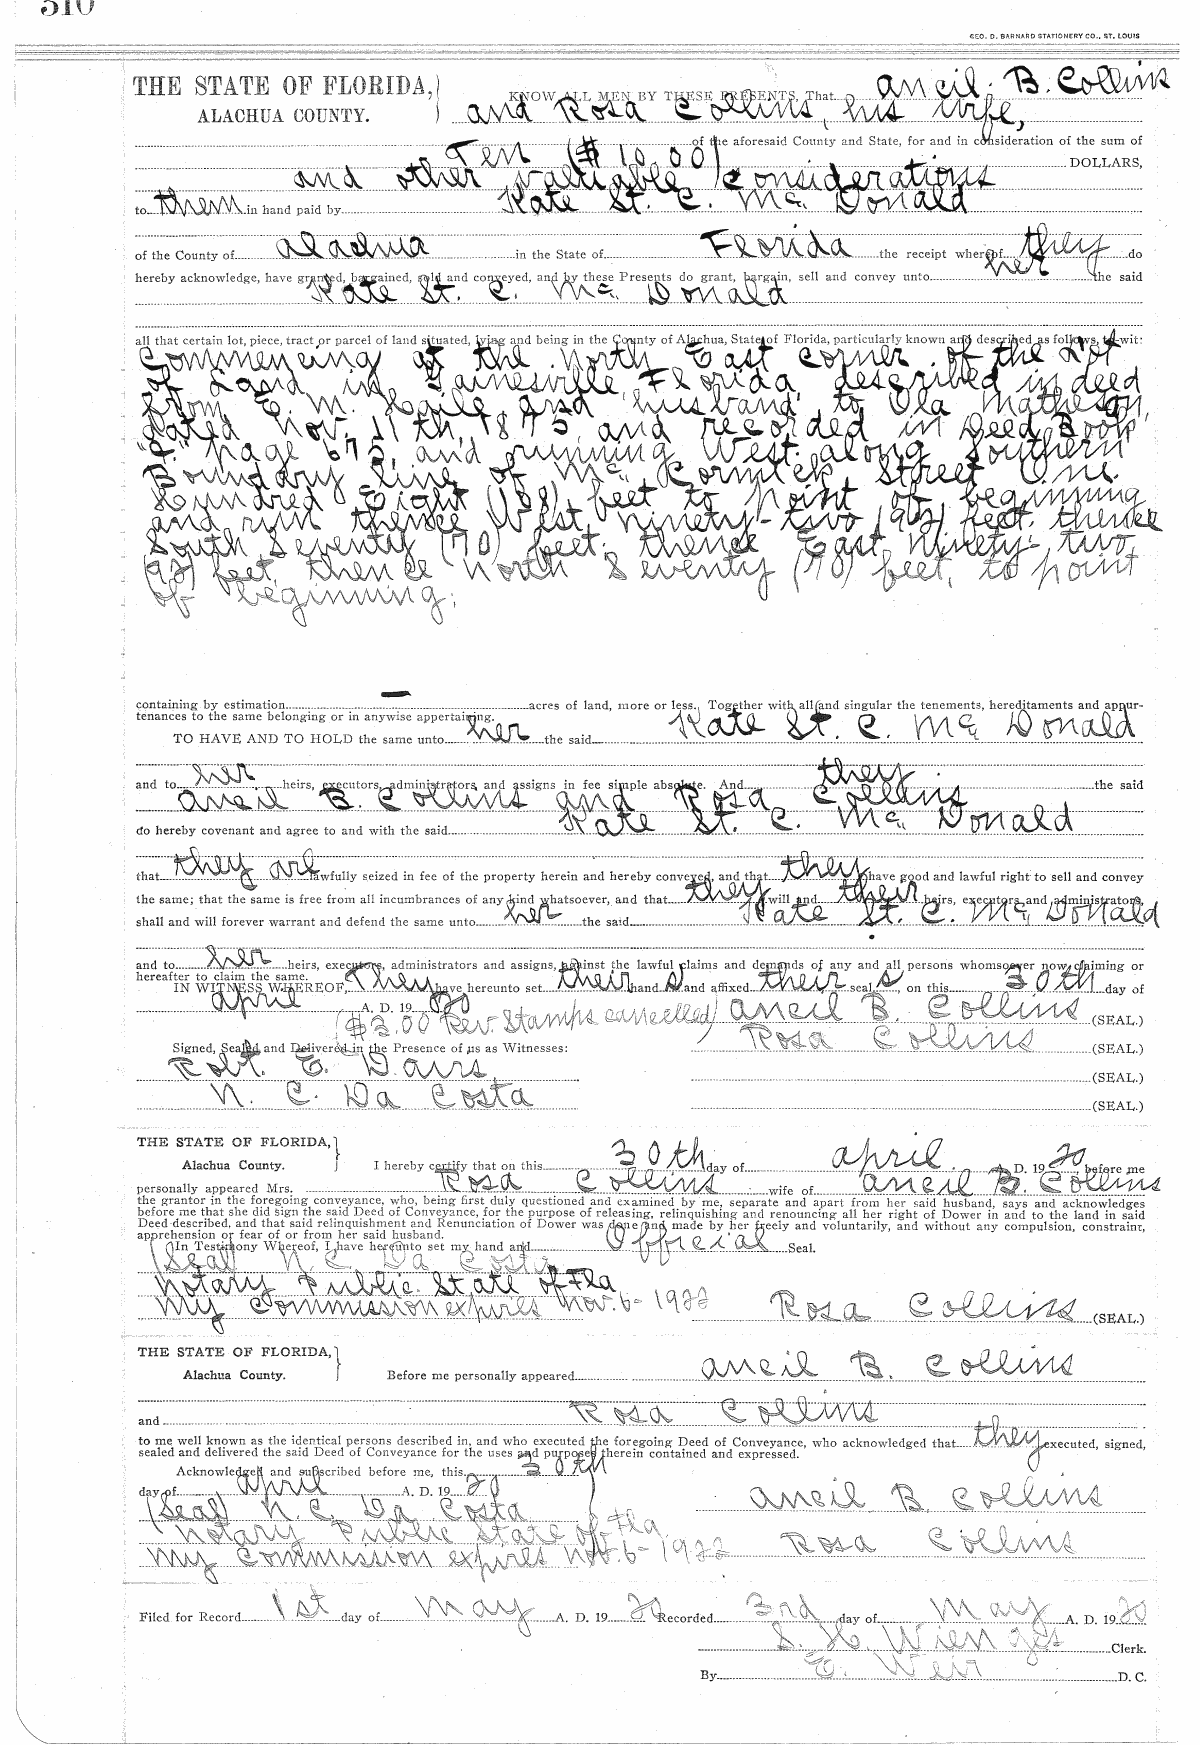 510
GEO. D. BARNARD STATIONERY CO., ST. LOUIS
THE STATE OF FLORIDA,
ALACHUA COUNTY.
KNOW ALL MEN BY THESE PRESENTS, That Ancil. B. Collins
and Rosa Collins, his wife,
of the aforesaid County and State, for and in consideration of the sum of
Ten ($10.00) DOLLARS,
and other valuable considerations
to them in hand paid by Kate St. C. Mc Donald
of the County of Alachua in the State of Florida the receipt whereof they do
hereby acknowledge, have granted, bargained, sold and conveyed, and by these Presents do grant, bargain, sell and convey unto her the said
Kate St. C. Mc Donald
all that certain lot, piece, tract or parcel of land situated, lying and being in the County of Alachua, State of Florida, particularly known and described as follows, to-wit:
Commencing at the North East corner of the Lot
of Land in Gainesville Florida, described in deed
from E. M. Haile and husband, to Ola Matheson,
dated Nov. 11th, 1875, and recorded in Deed Book
page 675, and running West along Southern
Boundary line of Mc. Cormick Street One
Hundred Eight (108) feet to point of beginning
and run thence West, ninety-two (92) feet. thence
South Seventy (70) feet. thence East, ninety-two
(92) feet, thence North Seventy (70) feet, to point
of beginning;
containing by estimation — acres of land, more or less. Together with all and singular the tenements, hereditaments and appur-
tenances to the same belonging or in anywise appertaining.
TO HAVE AND TO HOLD the same unto her the said Kate St. C. Mc Donald
and to her heirs, executors, administrators, and assigns in fee simple absolute. And they the said
Ancil B. Collins and Rosa Collins
do hereby covenant and agree to and with the said Kate St. C. Mc. Donald
that they are lawfully seized in fee of the property herein and hereby conveyed, and that they have good and lawful right to sell and convey
the same; that the same is free from all incumbrances of any kind whatsoever, and that they will and their heirs, executors and administrators,
shall and will forever warrant and defend the same unto her the said Kate St. C. Mc Donald
and to her heirs, executors, administrators and assigns, against the lawful claims and demands of any and all persons whomsoever now claiming or
hereafter to claim the same.
IN WITNESS WHEREOF, They have hereunto set their hand s and affixed their seal s, on this 30th day of
April A. D. 1920
($3.00 Rev. Stamps cancelled) Ancil B. Collins (SEAL.)
Rosa Collins (SEAL.)
Signed, Sealed and Delivered in the Presence of us as Witnesses:
Robt. E. Davis (SEAL.)
N. C. Da Costa (SEAL.)
THE STATE OF FLORIDA,
Alachua County.
I hereby certify that on this 30th day of April A. D. 1920 before me
personally appeared Mrs. Rosa Collins wife of Ancil B. Collins
the grantor in the foregoing conveyance, who, being first duly questioned and examined by me, separate and apart from her said husband, says and acknowledges
before me that she did sign the said Deed of Conveyance, for the purpose of releasing, relinquishing and renouncing all her right of Dower in and to the land in said
Deed described, and that said relinquishment and Renunciation of Dower was done and made by her freely and voluntarily, and without any compulsion, constraint,
apprehension or fear of or from her said husband.
In Testimony Whereof, I have hereunto set my hand and Official Seal.
(Seal) N. C. Da Costa
Notary Public State of Fla
My Commission expires Nov. 6- 1922 Rosa Collins (SEAL.)
THE STATE OF FLORIDA,
Alachua County.
Before me personally appeared Ancil B. Collins
and Rosa Collins
to me well known as the identical persons described in, and who executed the foregoing Deed of Conveyance, who acknowledged that they executed, signed,
sealed and delivered the said Deed of Conveyance for the uses and purposes therein contained and expressed.
Acknowledged and subscribed before me, this 30th
day of April A. D. 1920
(Seal) N. C. Da Costa Ancil B Collins
Notary Public State of Fla
My Commission expires Nov. 6- 1922 Rosa Collins
Filed for Record 1st day of May A. D. 1920 Recorded 3rd day of May A. D. 1920
S. H. Wienges Clerk.
By E. Weir D. C.